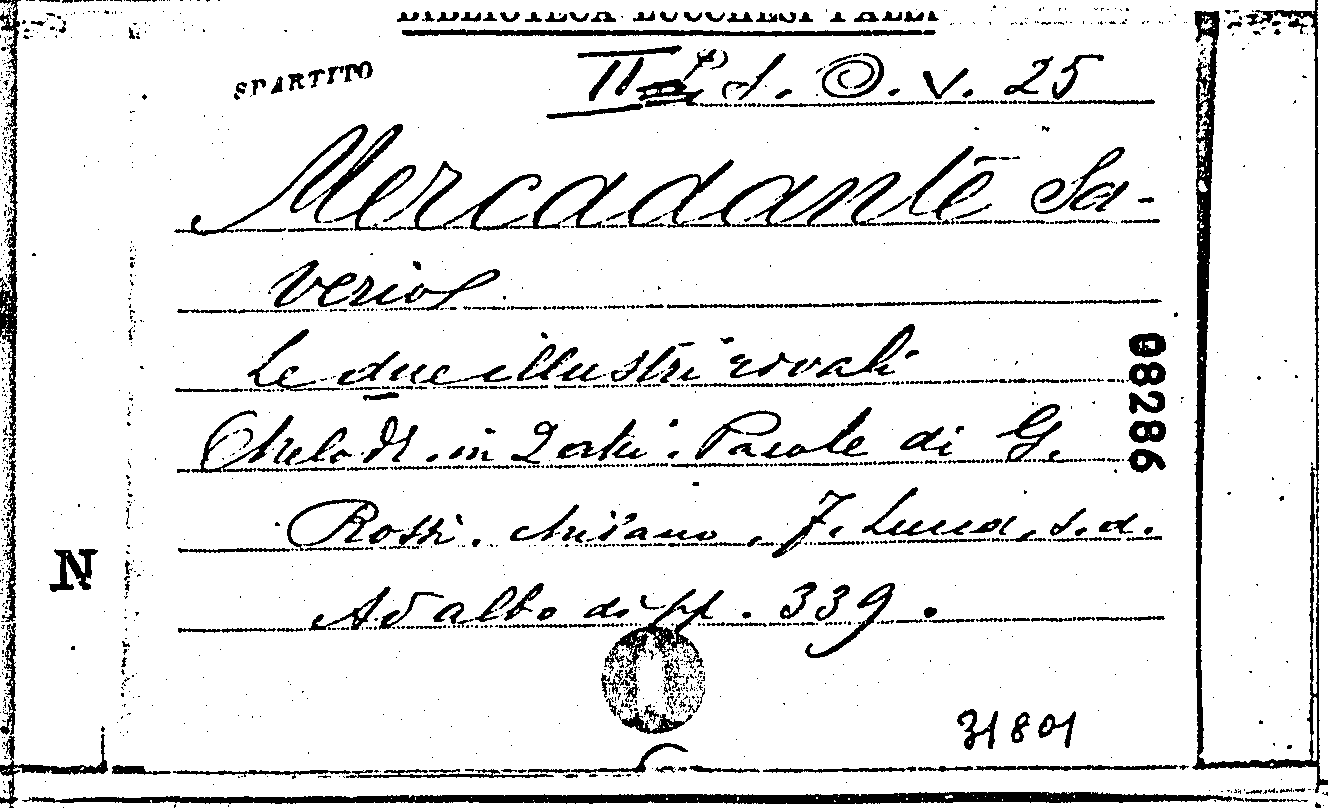 BIBLIOTECA LUCCHESI PALLI
SPARTITO
II. O. V. 25
Mercadante Sa-
verio
Le due illustri rivali
Melodr. in 3 atti. Parole di G.
Rossi. Milano, F. Lucca, s.d.
Ad albo di pp. 339.
08286
N
31801